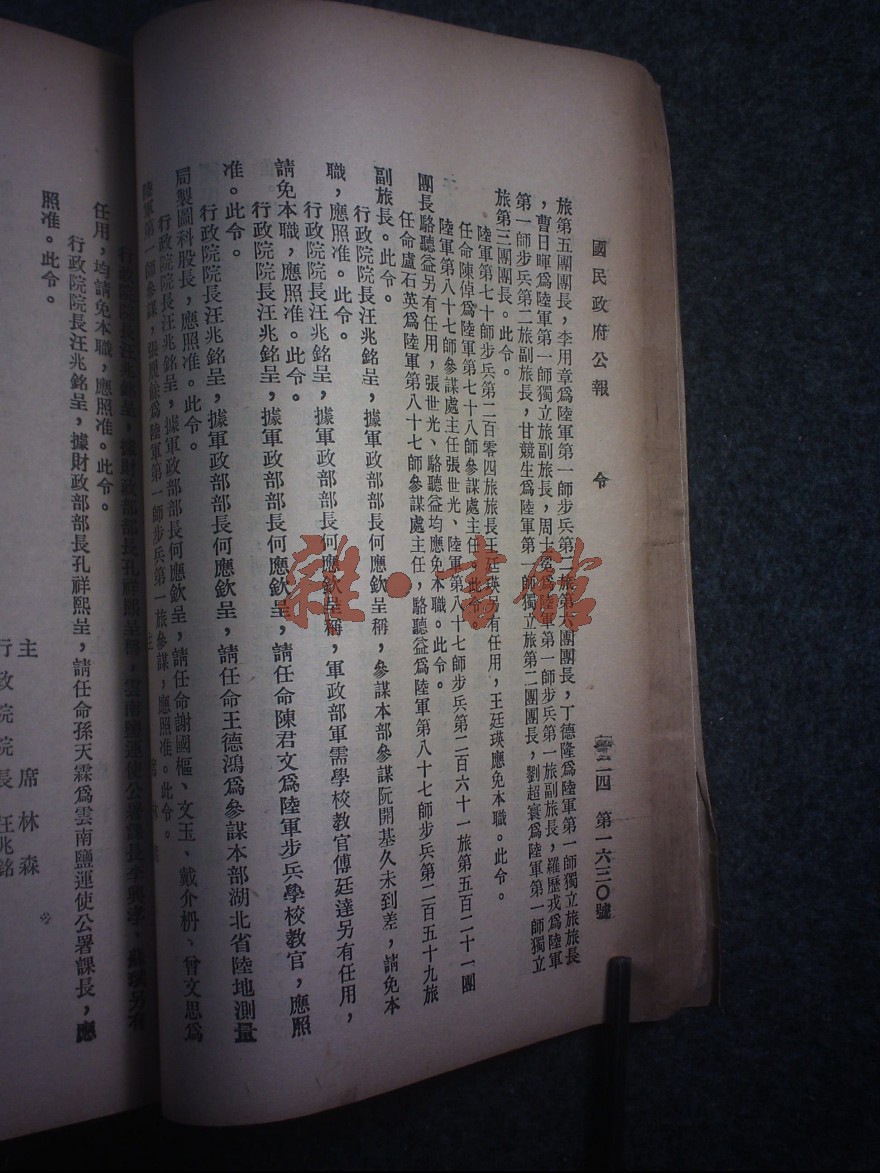 國民政府公報 令 二四 第一六三〇號
旅第五團團長，李用章爲陸軍第一師步兵第二旅第六團團長，丁德隆爲陸軍第一師獨立旅旅長
，曹日暉爲陸軍第一師獨立旅副旅長，周士冕爲陸軍第一師步兵第一旅副旅長，羅歷戎爲陸軍
第一師步兵第二旅副旅長，甘競生爲陸軍第一師獨立旅第二團團長，劉超寰爲陸軍第一師獨立
旅第三團團長。此令。
陸軍第七十師步兵第二百零四旅旅長王廷瑛另有任用，王廷瑛應免本職。此令。
任命陳倬爲陸軍第七十八師參謀處主任。此令。
陸軍第八十七師參謀處主任張世光、陸軍第八十七師步兵第二百六十一旅第五百二十一團
團長駱聽益另有任用，張世光、駱聽益均應免本職。此令。
任命盧石英爲陸軍第八十七師參謀處主任，駱聽益爲陸軍第八十七師步兵第二百五十九旅
副旅長。此令。
行政院院長汪兆銘呈，據軍政部部長何應欽呈稱，參謀本部參謀阮開基久未到差，請免本
職，應照准。此令。
行政院院長汪兆銘呈，據軍政部部長何應欽呈稱，軍政部軍需學校教官傅廷達另有任用，
請免本職，應照准。此令。
行政院院長汪兆銘呈，據軍政部部長何應欽呈，請任命陳君文爲陸軍步兵學校教官，應照
准。此令。
行政院院長汪兆銘呈，據軍政部部長何應欽呈，請任命王德鴻爲參謀本部湖北省陸地測量
局製圖科股長，應照准。此令。
行政院院長汪兆銘呈，據軍政部部長何應欽呈，請任命謝國樞、文玉、戴介枬、曾文思爲
陸軍第一師參謀，張爲陸軍第一師步兵第一旅參謀，應照准。此令。
行政院院長汪兆銘呈，據財政部部長孔祥熙呈稱，雲南鹽運使公署課長李興另有
任用，均請免本職，應照准。此令。
行政院院長汪兆銘呈，據財政部部長孔祥熙呈，請任命孫天霖爲雲南鹽運使公署課長，應
照准。此令。
主席林森
行政院院長汪兆銘
雜·書館